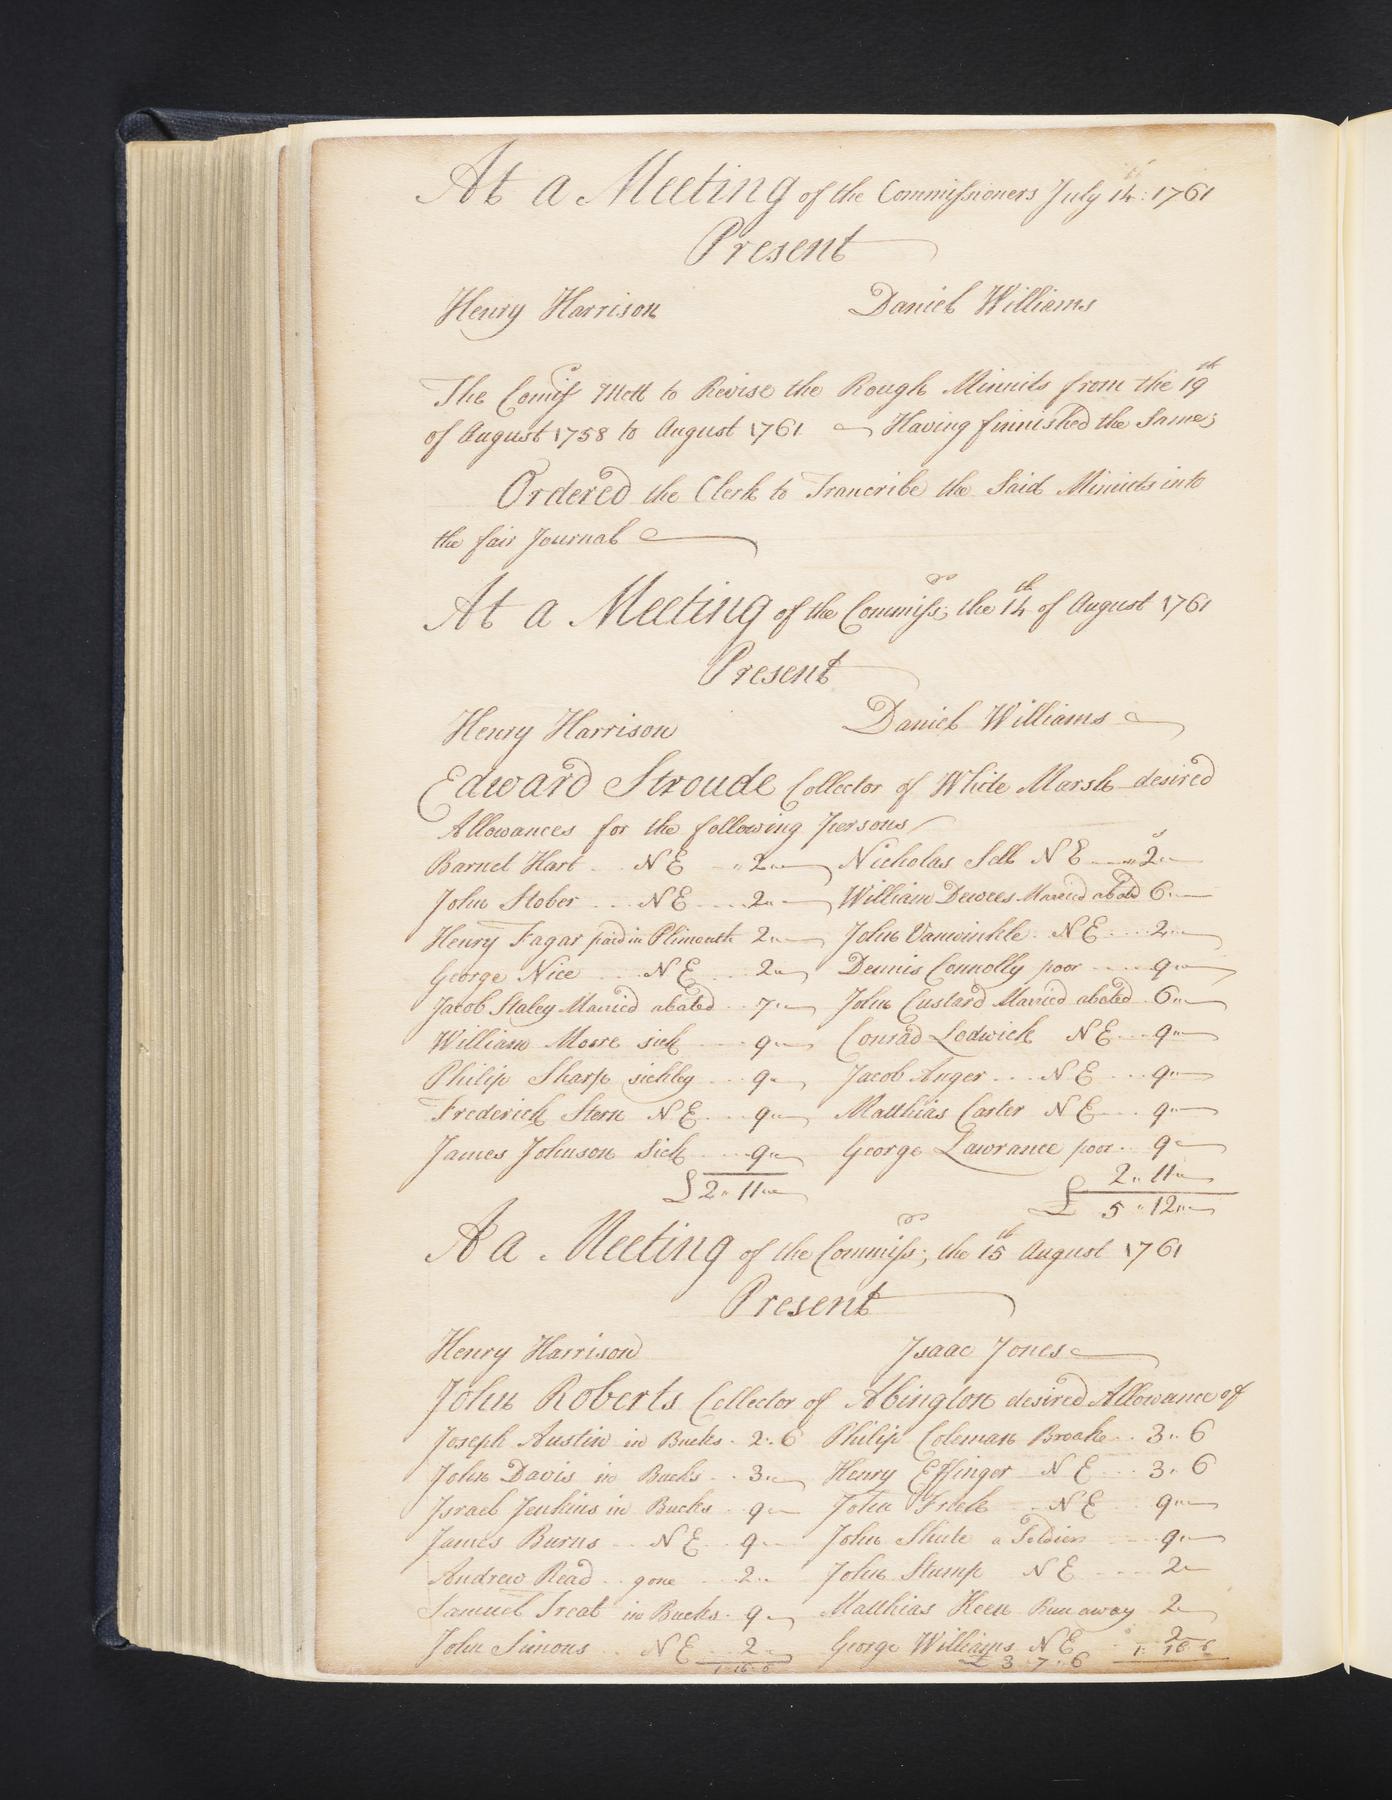 At a Meeting of the Commissioners July 14th: 1761
Present
Henry Harrison Daniel Williams
The Comissrs Mett to Revise the Rough Minuits from the 19th
of August 1758 to August 1761 Having finnished the Same;
Ordered the Clerk to Trancribe the Said Minuits into
the fair Journal
At a Meeting of the Commissrs; the 14th of August 1761
Present
Henry Harrison Daniel Williams
Edward Stroude Collector of White Marsh desired
Allowances for the following persons
Barnet Hart N E 2 Nicholas Sell N E 2
John Stober N E 2 William Dewees Married abated 6
Henry Fagar paid in Plimouth 2 John Vanwinkle N E 2
George Nice N E 2 Dennis Connolly poor 9
Jacob Staley Married abated 7 John Custard Married abated 6
William Moore sick 9 Conrad Lodwick N E 9
Philip Sharp sickley 9 Jacob Auger N E 9
Frederick Stern N E 9 Matthias Caster N E 9
James Johnson Sick 9 George Lawrance poor 9
£2 " 11 2 " 11
£ 5 " 12
A a Meeting of the Commissrs; the 15th August 1761
Present
Henry Harrison Isaac Jones
John Roberts Collector of Abington desired Allowance of
Joseph Austin in Bucks 2 " 6 Philip Coleman Broake 3 " 6
John Davis in Bucks 3 Henry Effinger N E 3 " 6
Israel Jenkins in Bucks 9 John Frick N E 9
James Burns N E 9 John Shute a Soldier 9
Andrew Read gone 2 John Stump N E 2
Samuel Treat in Bucks 9 Matthias Keen Run away 2
John Simons N E 2 George Williams N E 2
£ 3 " 7 " 6